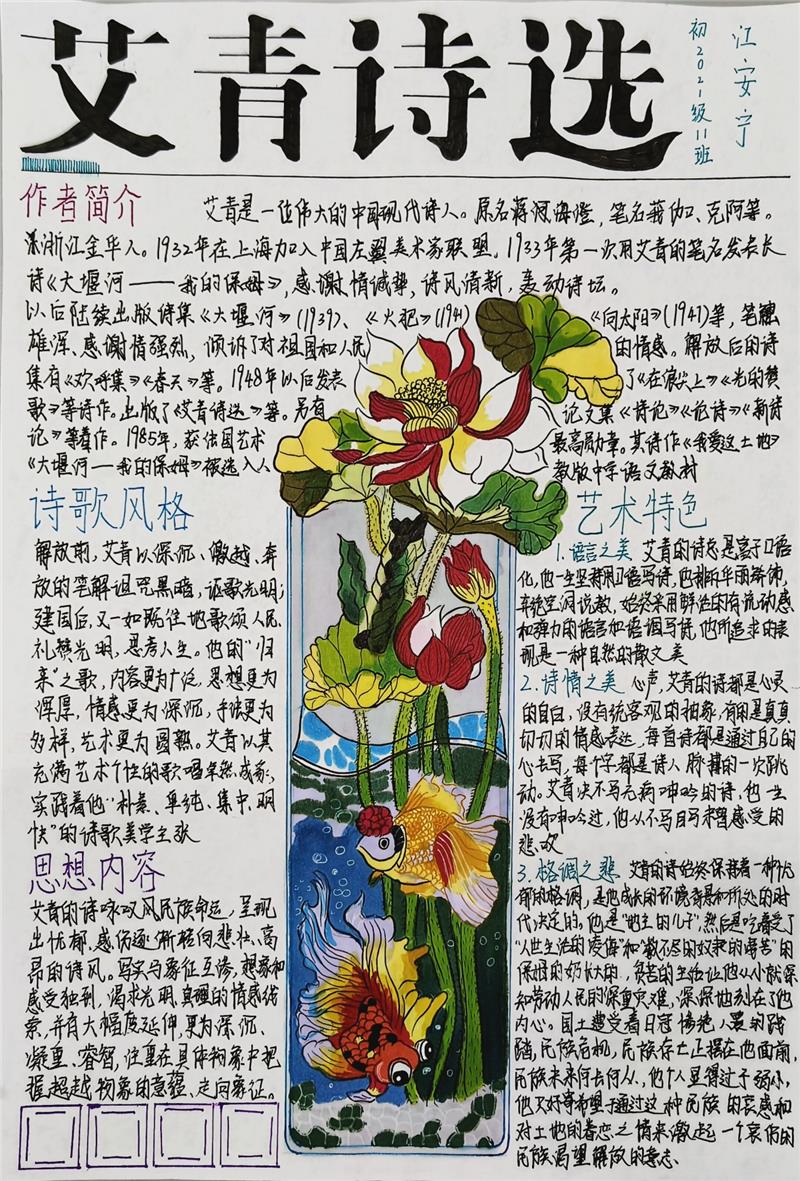 艾青诗选
初2021级11班
江安宁
作者简介
艾青是一位伟大的中国现代诗人。原名蒋海澄，笔名莪伽、克阿等。
浙江金华人。1932年在上海加入中国左翼美术家联盟。1933年第一次用艾青的笔名发表长
诗《大堰河——我的保姆》，感谢情诚挚，诗风清新，轰动诗坛。
以后陆续出版诗集《大堰河》(1939)、《火把》(1941)《向太阳》(1941)等，笔触
雄浑、感谢情强烈，倾诉了对祖国和人民的情感。解放后的诗
集有《欢呼集》《春天》等。1948年以后发表了《在浪尖上》《光的赞
歌》等诗作。出版了《艾青诗选》等。另有论文集《诗论》《论诗》《新诗
论》等著作。1985年，获法国艺术最高勋章。其诗作《我爱这土地》
《大堰河—我的保姆》被选入人教版中学语文教材
诗歌风格
解放前，艾青以深沉、激越、奔
放的笔解诅咒黑暗，讴歌光明；
建国后，又一如既往地歌颂人民、
礼赞光明，思考人生。他的"归
来"之歌，内容更为广泛，思想更为
浑厚，情感更为深沉，手法更为
多样，艺术更为圆熟。艾青以其
充满艺术个性的歌唱卓然成家，
实践着他"朴素、单纯、集中、明
快"的诗歌美学主张
思想内容
艾青的诗咏叹风民族命运，呈现
出忧郁、感伤逐渐转向悲壮、高
昂的诗风。写实与象征互渗，想象和
感受独到，渴求光明、真理的情感线
索，并有大幅度延伸，更为深沉、
凝重、睿智，注重在具体物象中把
握超越物象的意蕴、走向象征。
艺术特色
1.语言之美 艾青的诗总是富于口语
化，他一生坚持用口语写诗，他排斥华丽雕饰，
弃绝空洞说教，始终采用鲜活的有流动感
和弹力的语言和语调写诗，他所追求的表
现是一种自然的散文美
2.诗情之美 心声，艾青的诗都是心灵
的自白，没有纯客观的抽象，有用是真真
切切的情感表达，每首诗都是通过自己的
心去写，每个字都是诗人脉搏的一次跳
动。艾青决不写无病呻吟的诗，他一生
没有呻吟过，他从不写自写未曾感受的
悲欢
3.格调之悲 艾青的诗始终保持着一种忧
郁的格调，是他成长的环境背景和所处的时
代决定的。他是"地主的儿子"，然后是吃着受了
"人世生活的凌侮"和"数不尽的奴隶的痛苦"的
保姆的奶长大的，贫苦的生活让他从小就深
知劳动人民的深重灾难，深深地刻在了他
内心。国土遭受着日寇惨绝人寰的践
踏，民族危机，民族存亡正摆在他面前，
民族未来何去何从，他个人显得过于弱小，
他只好寄希望于通过这种民族的哀感和
对土地的眷恋之情来激起一个哀伤的
民族渴望解放的意志